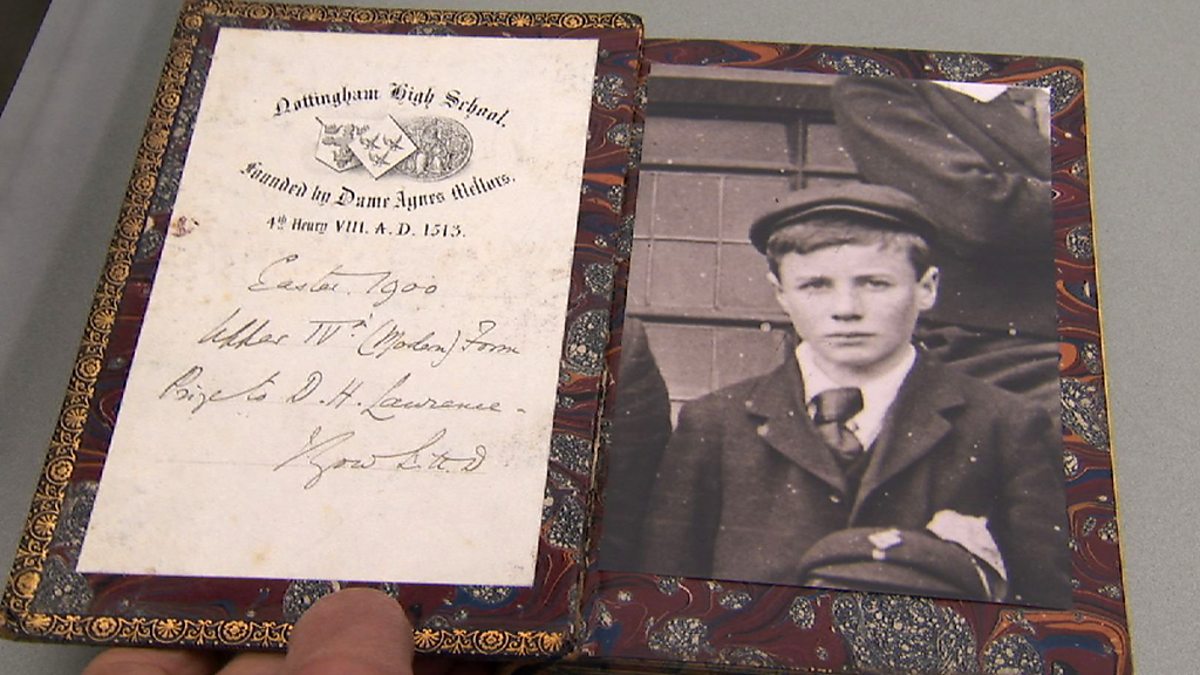 Nottingham High School.
Founded by Dame Agnes Mellors.
4th Henry VIII. A. D. 1513.
Easter. 1900
Upper IVa (Modern) Form
Prize to D. H. Lawrence.
Gow Litt.D